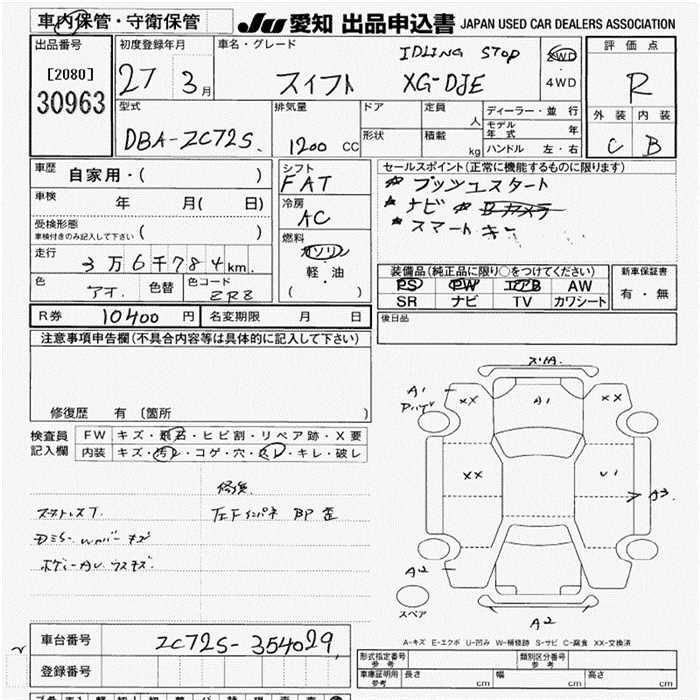 車内保管・守衛保管
JU 愛知 出品申込書 JAPAN USED CAR DEALERS ASSOCIATION
出品番号 初度登録年月 車名・グレード IDLING STOP 2WD 評価点
[2080] 27 3月 スイフト XG-DJE 4WD R
30963
型式 排気量 ドア 定員 人 ディーラー・並行 外装 内装
DBA-ZC72S 1200 CC 形状 積載 kg モデル年式 年 C B
ハンドル 左・右
車歴 自家用・( ) シフト FAT セールスポイント(正常に機能するものに限ります)
車検 年 月( 日) 冷房 AC
受検形態 車検付きのみ記入して下さい ( ) 燃料 ガソリン 軽・油 ( )
* プッツエスタート
* ナビ * Bカメラ
* スマートキー
走行 3万6千784km.
色 アオ. 色替 色コード ZRZ
装備品(純正品に限り○をつけてください) 新車保証書
PS PW エアB AW 有・無
SR ナビ TV カワシート
R券 10400 円 名変期限 月 日 後日品
注意事項申告欄(不具合内容等は具体的に記入して下さい)
修復歴 有 〔箇所 〕
検査員記入欄 FW キズ・飛石・ヒビ割・リペア跡・X要
内装 キズ・汚レ・コゲ・穴・スレ・キレ・破レ
修復
スタットレスT. 左Fインパネ BP 歪
ボディーAU ウスキズ.
ズリA.
A1
XX A1 XX
XX U1
A3
A2
スペア
A2
A-キズ E-エクボ U-凹み W-補修跡 S-サビ C-腐食 XX-交換済
車台番号 ZC72S-354029
登録番号
形式指定番号 参考 類別区分番号 参考
車庫証明用 参考 長さ cm 幅 cm 高さ cm